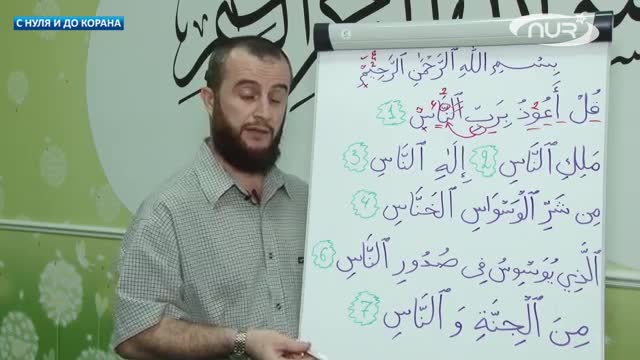 С НУЛЯ И ДО КОРАНА
NUR
بِسْمِ اللهِ ٱلرَّحْمٰنِ ٱلرَّحِيْمِ
قُلْ أَعُوْذُ بِرَبِّ ٱلنَّاسِ 1
مَلِكِ ٱلنَّاسِ 2 إِلٰهِ ٱلنَّاسِ 3
مِن شَرِّ ٱلْوَسْوَاسِ ٱلْخَنَّاسِ 4
ٱلَّذِي يُوَسْوِسُ فِي صُدُورِ ٱلنَّاسِ 6
مِنَ ٱلْجِنَّةِ وَ ٱلنَّاسِ 7